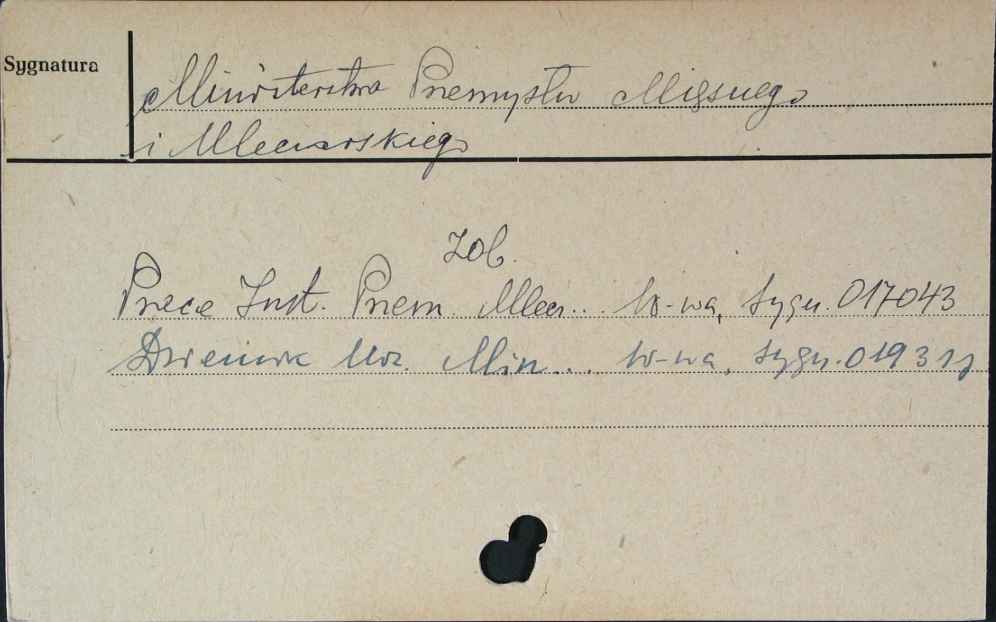 Sygnatura
Ministerstwo Przemysłu Mięsnego
i Mleczarskiego
Zob.
Prace Inst. Przem. Mlecz... W-wa, Sygn. 017043
Dziennik Urz. Min... W-wa, Sygn. 01931